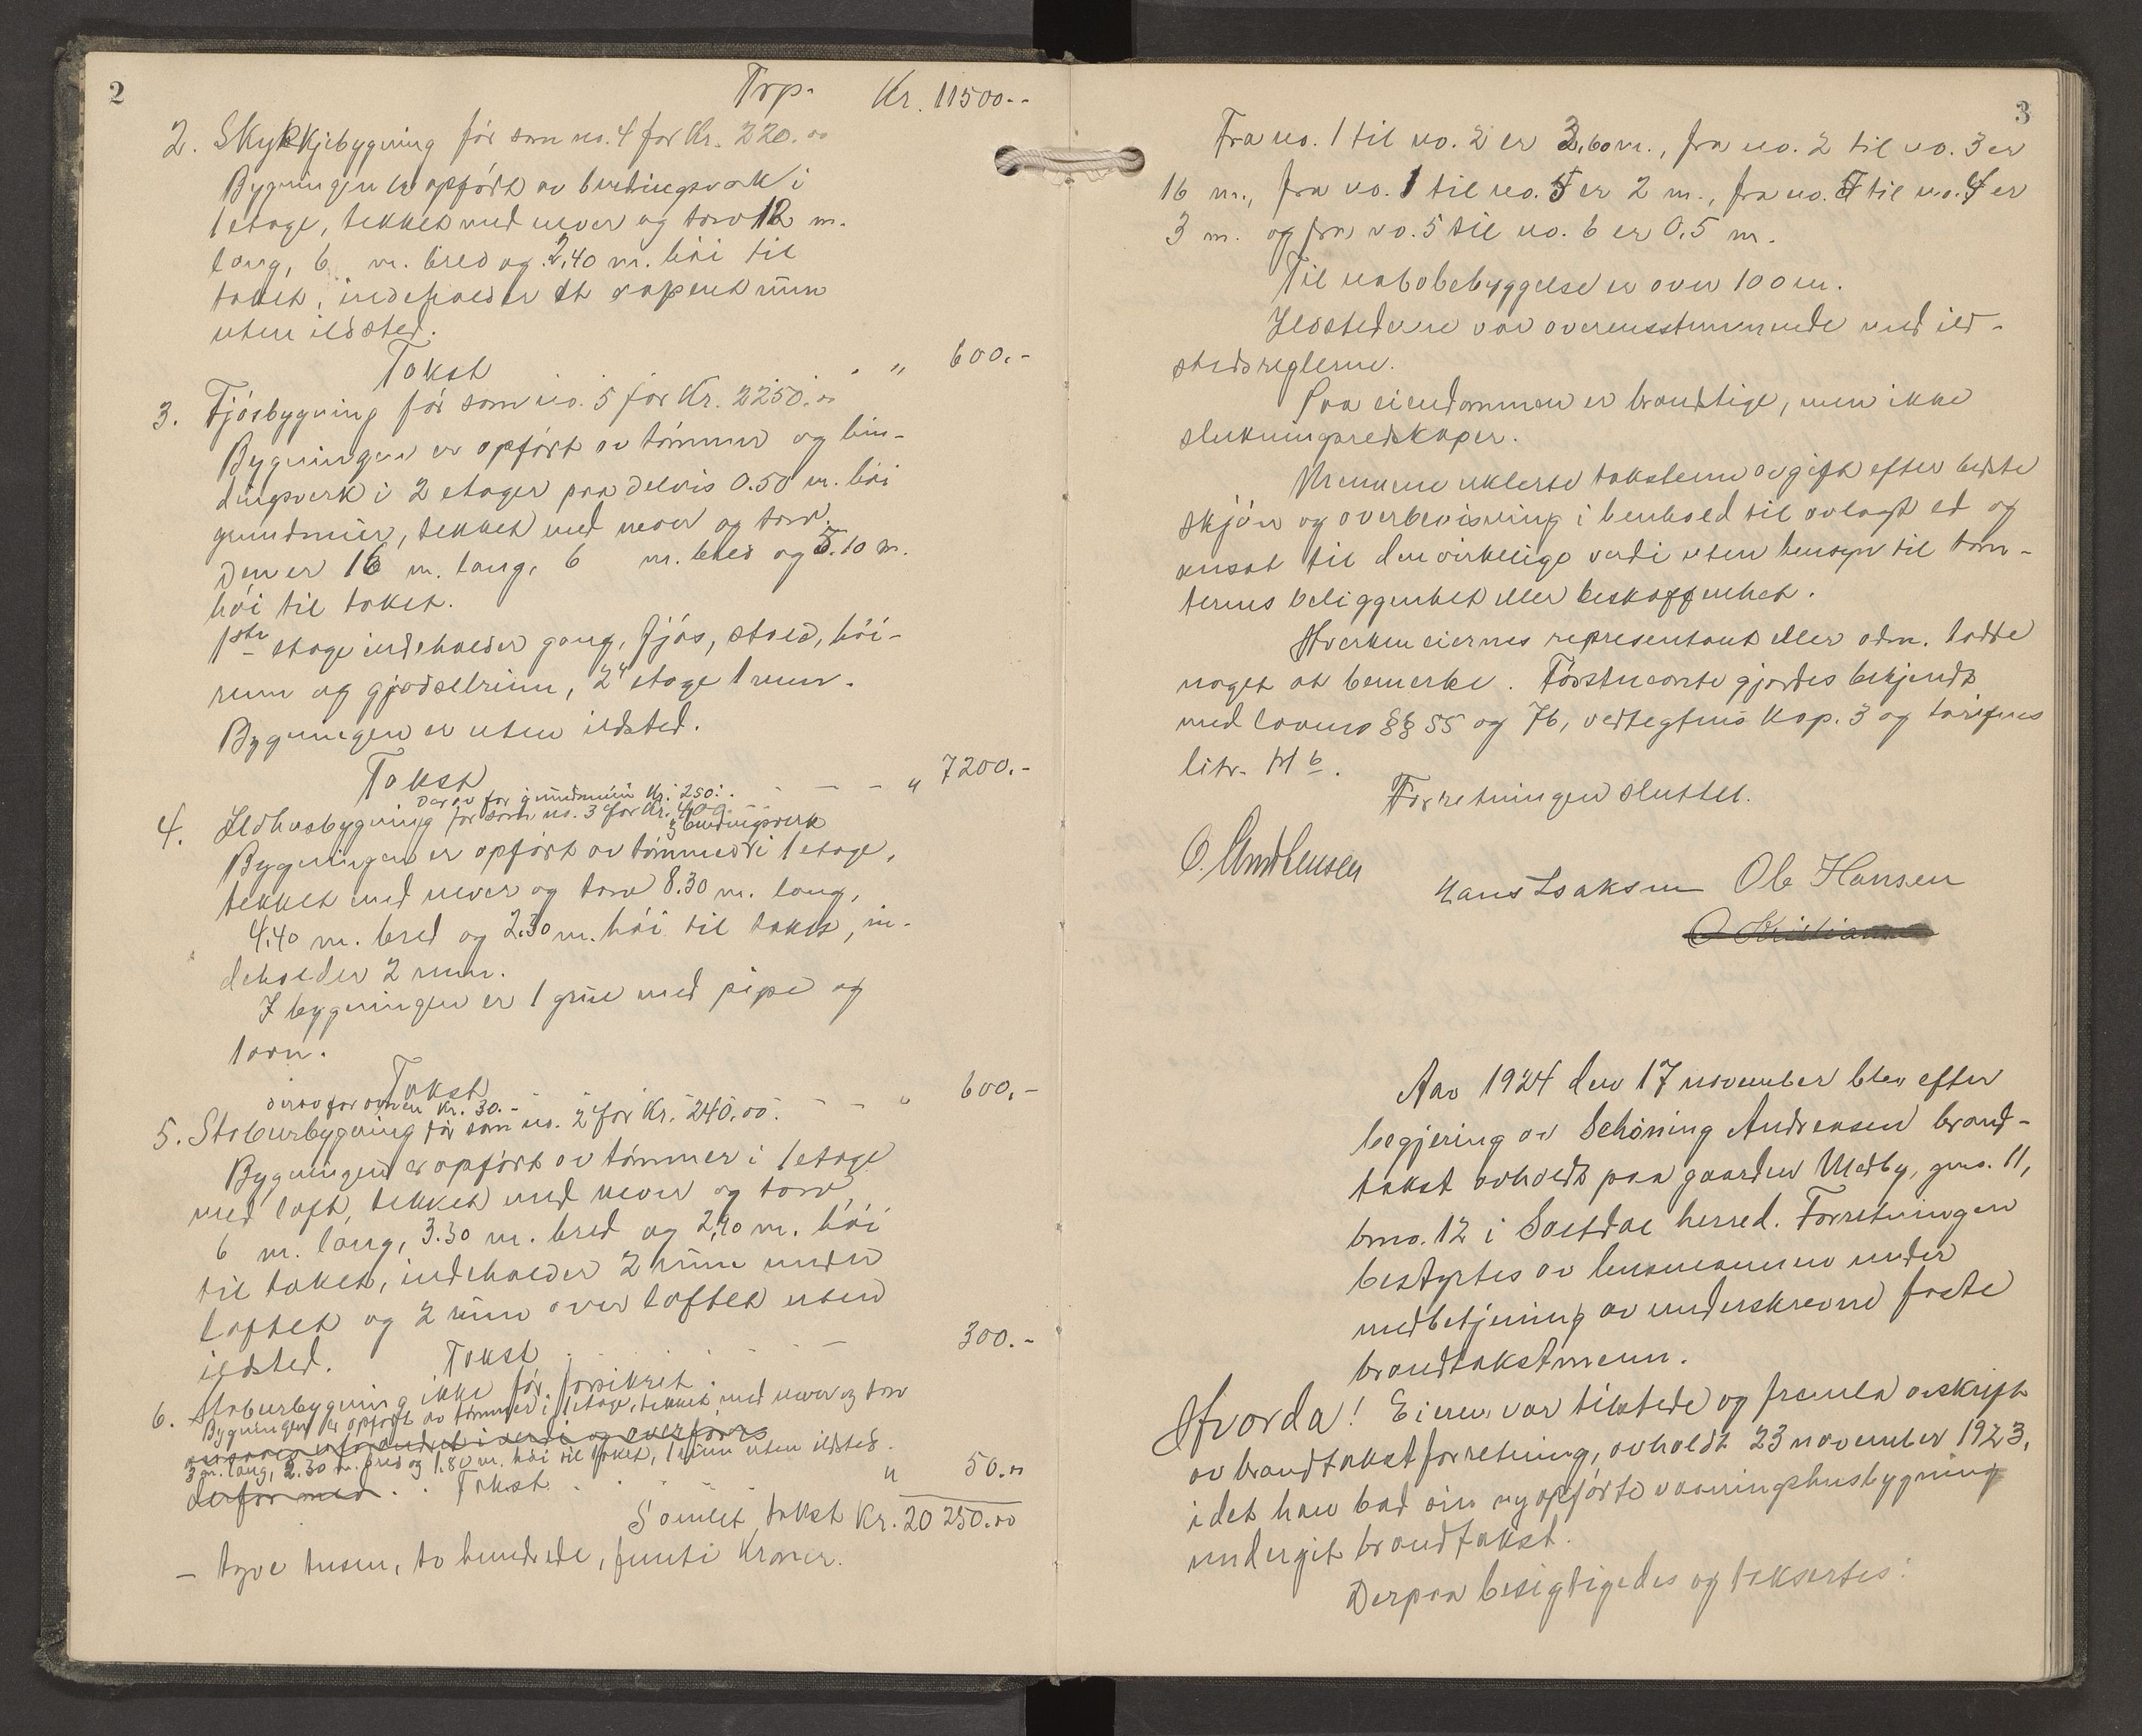 2
Trp. Kr. 11500.-
2. Skykkjebygning før som no. 4 for Kr. 220.00
Bygningen er opført av bindingsverk i
1 etage, tekket med never og torv 12 m.
lang, 6 m. bred og 2,40 m. høi til
taket, indeholder et aapent rum
uten ildsted.
Takst . " 600.-
3. Fjøsbygning før som no. 5 for Kr. 2250.00
Bygningen er opført av tømmer og bin-
dingsverk i 2 etager paa delvis 0.50 m. høi
grundmur, tekket med never og torv.
Den er 16 m. lang, 6 m. bred og 5.10 m.
høi til taket.
1ste etage indeholder gang, fjøs, stald, høi-
rum og gjødselrum, 2" etage 1 rum.
Bygningen er uten ildsted.
Takst - - - " 7200.-
Derav for grundmur Kr. 250.-
4. Ildhusbygning før som no. 3 for Kr. 400.
og bindingsverk
Bygningen er opført av tømmer i 1 etage,
tekket med never og torv 8.30 m. lang,
4.40 m. bred og 2.30 m. høi til taket, in-
deholder 2 rum.
I bygningen er 1 grue med pipe og
1 ovn.
Takst - - " 600.-
derav for ovnen Kr. 30.-
5. Stabursbygning før som no. 2 for Kr. 240.00.
Bygningen er opført av tømmer i 1 etage
med loft, tekket med never og torv,
6 m. lang, 3.30 m. bred og 2,40 m. høi
til taket, indeholder 2 rum under
loftet og 2 rum over loftet uten
ildsted. Takst - 300.-
6. Stabursbygning ikke før forsikret.
Bygningen er opført av tømmer i 1 etage, tekket med never og torv
uforandret i verdi og overføres
3 m. lang, 2.30 m. bred og 1.80 m. høi til taket, 1 rum uten ildsted.
derfor med . . Takst " 50.00
Samlet takst Kr. 20 250.00
- tyve tusen, to hundrede, femti Kroner.
3
Fra no. 1 til no. 2 er 3,60 m., fra no. 2 til no. 3 er
16 m., fra no. 1 til no. 5 er 2 m., fra no. 5 til no. 4 er
3 m. og fra no. 5 til no. 6 er 0.5 m.
Til nabobebyggelse er over 100 m.
Ildstederne var overensstemmende med ild-
stedsreglerne.
Paa eiendommen er brandstige, men ikke
slukningsredskaper.
Mennene erklerte taksterne avgit efter bedste
skjøn og overbevisning i henhold til avlagt ed og
ansat til den virkelige verdi uten hensyn til tom-
ternes beliggenhet eller beskaffenhet.
Hverken eiernes representant eller adm. hadde
noget at bemerke. Førstnevnte gjordes bekjendt
med lovens §§ 55 og 76, vedtegtens Kap. 3 og tarifens
litr. H b.
Forretningen sluttet.
O. Amdhensen
Hans Isaksen Ole Hansen
O Kristiansen
Aar 1924 den 17 november blev efter
begjering av Schøning Andreasen brand-
takst avholdt paa gaarden Medby, gno. 11,
bno. 12 i Saltdal herred. Forretningen
bestyrtes av lensmannen under
medbetjening av underskrevne faste
brandtakstmenn.
Hvorda! Eieren var tilstede og fremla avskrift
av brandtakstforretning, avholdt 23 november 1923,
idet han bad sin nyopførte vaaningshusbygning
undergit brandtakst.
Derpaa besigtigedes og taksertes: